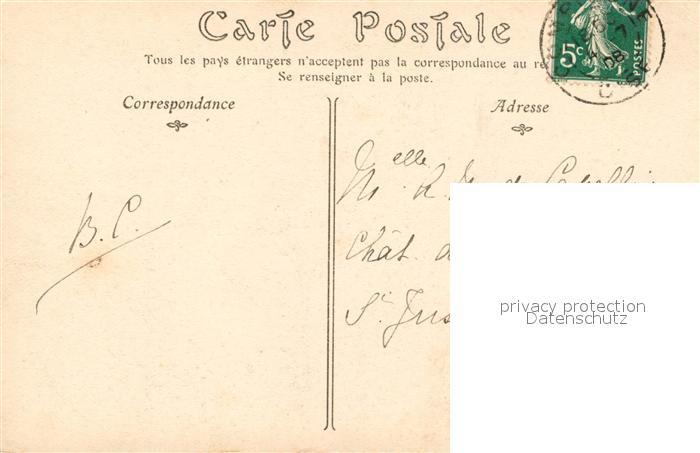 Carte Postale
Tous les pays étrangers n'acceptent pas la correspondance au
Se renseigner à la poste.
5c
POSTES
08
Correspondance
Adresse
B. C.
Melle R. M. de
Chât. d
St. Jus
privacy protection
Datenschutz